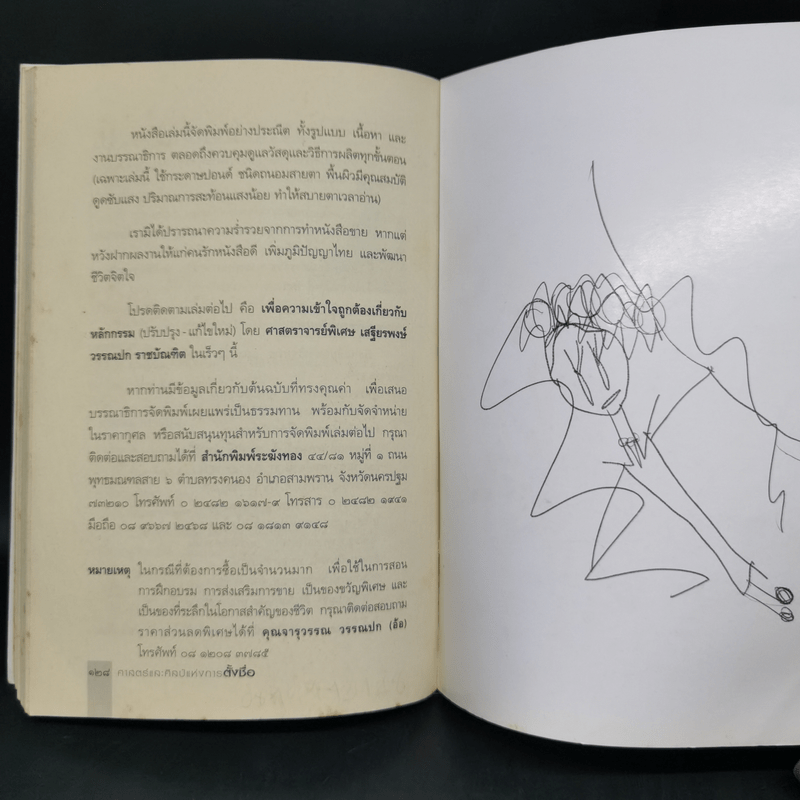 หนังสือเล่มนี้จัดพิมพ์อย่างประณีต ทั้งรูปแบบ เนื้อหา และ
งานบรรณาธิการ ตลอดถึงควบคุมดูแลวัสดุและวิธีการผลิตทุกขั้นตอน
(เฉพาะเล่มนี้ ใช้กระดาษปอนด์ ชนิดถนอมสายตา พื้นผิวมีคุณสมบัติ
ดูดซับแสง ปริมาณการสะท้อนแสงน้อย ทำให้สบายตาเวลาอ่าน)
เรามิได้ปรารถนาความร่ำรวยจากการทำหนังสือขาย หากแต่
หวังฝากผลงานให้แก่คนรักหนังสือดี เพิ่มภูมิปัญญาไทย และพัฒนา
ชีวิตจิตใจ
โปรดติดตามเล่มต่อไป คือ เพื่อความเข้าใจถูกต้องเกี่ยวกับ
หลักกรรม (ปรับปรุง - แก้ไขใหม่) โดย ศาสตราจารย์พิเศษ เสฐียรพงษ์
วรรณปก ราชบัณฑิต ในเร็วๆ นี้
หากท่านมีข้อมูลเกี่ยวกับต้นฉบับที่ทรงคุณค่า เพื่อเสนอ
บรรณาธิการจัดพิมพ์เผยแพร่เป็นธรรมทาน พร้อมกับจัดจำหน่าย
ในราคากุศล หรือสนับสนุนทุนสำหรับการจัดพิมพ์เล่มต่อไป กรุณา
ติดต่อและสอบถามได้ที่ สำนักพิมพ์ระฆังทอง ๔๔/๘๑ หมู่ที่ ๑ ถนน
พุทธมณฑลสาย ๖ ตำบลทรงคนอง อำเภอสามพราน จังหวัดนครปฐม
๗๓๒๑๐ โทรศัพท์ ๐ ๒๔๘๒ ๑๖๑๗-๙ โทรสาร ๐ ๒๔๘๒ ๑๙๔๑
มือถือ ๐๘ ๙๖๖๗ ๒๔๖๘ และ ๐๘ ๑๘๑๓ ๙๑๔๘
หมายเหตุ ในกรณีที่ต้องการซื้อเป็นจำนวนมาก เพื่อใช้ในการสอน
การฝึกอบรม การส่งเสริมการขาย เป็นของขวัญพิเศษ และ
เป็นของที่ระลึกในโอกาสสำคัญของชีวิต กรุณาติดต่อสอบถาม
ราคาส่วนลดพิเศษได้ที่ คุณจารุวรรณ วรรณปก (อ้อ)
โทรศัพท์ ๐๘ ๑๒๐๘ ๓๗๘๕
๑๒๘ ศาสตร์และศิลป์แห่งการตั้งชื่อ